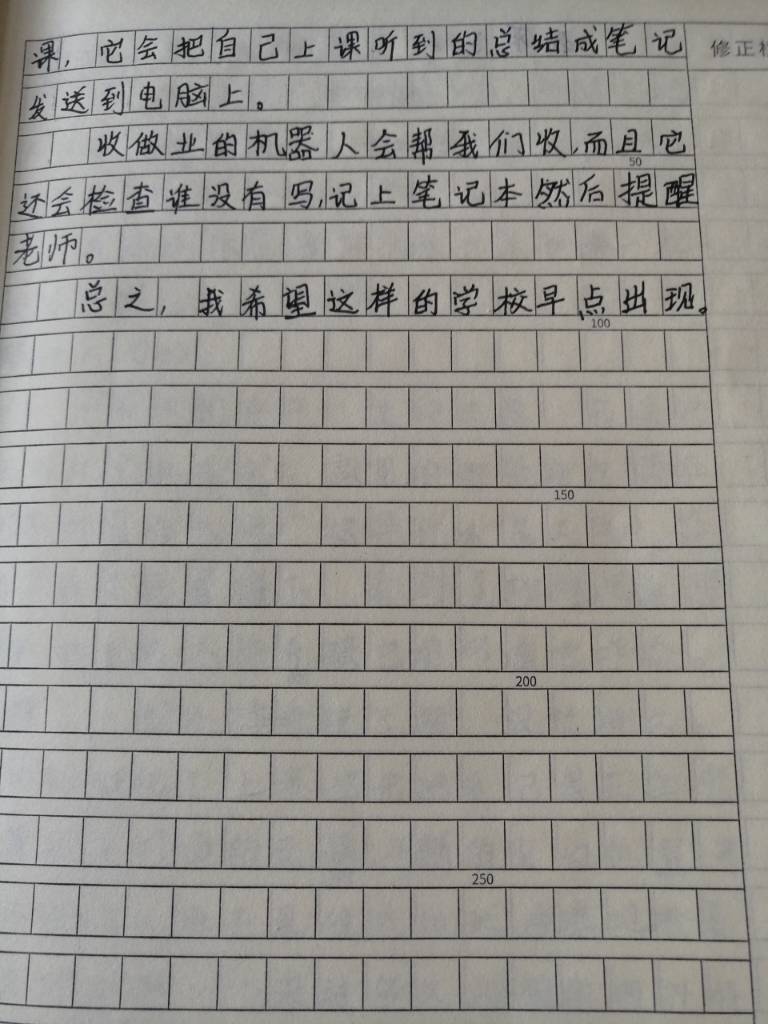 课，它会把自己上课听到的总结成笔记
修正
发送到电脑上。
收做业的机器人会帮我们收，而且它
50
还会检查谁没有写，记上笔记本然后提醒
老师。
总之，我希望这样的学校早点出现。
100
150
200
250